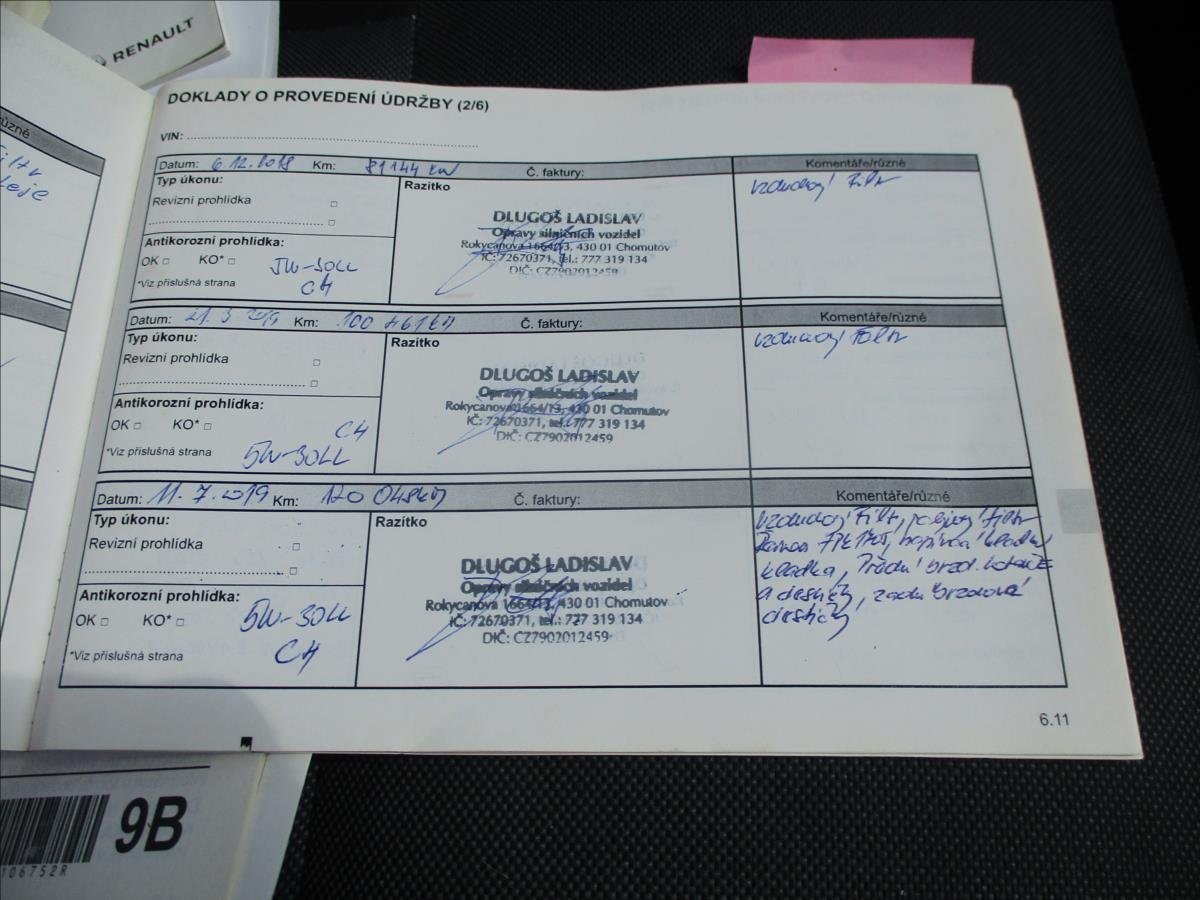 RENAULT
různé
DOKLADY O PROVEDENÍ ÚDRŽBY (2/6)
VIN:
Datum: 6.12.2018 Km: 81144 km Č. faktury: Komentáře/různé
Typ úkonu:
Revizní prohlídka □
□
Antikorozní prohlídka:
OK □ KO* □
5W-30LL
*Viz příslušná strana
C4
Razítko
DLUGOŠ LADISLAV
Opravy silničních vozidel
Rokycanova 1664/13, 430 01 Chomutov
IČ: 72670371, tel.: 777 319 134
DIČ: CZ7902012459
vzduchový Filtr
Datum: 21.3 2019 Km: 100 Č. faktury: Komentáře/různé
Typ úkonu:
Revizní prohlídka □
□
Antikorozní prohlídka:
OK □ KO* □
C4
*Viz příslušná strana
5W-30LL
Razítko
DLUGOŠ LADISLAV
Opravy silničních vozidel
Rokycanova 1664/13, 430 01 Chomutov
IČ: 72670371, tel.: 777 319 134
DIČ: CZ7902012459
vzduchový Filtr
Datum: 11.7.2019 Km: 120 Č. faktury: Komentáře/různé
Typ úkonu:
Revizní prohlídka □
□
Antikorozní prohlídka:
OK □ KO* □
5W-30LL
*Viz příslušná strana
C4
Razítko
DLUGOŠ LADISLAV
Opravy silničních vozidel
Rokycanova 1664/13, 430 01 Chomutov
IČ: 72670371, tel.: 777 319 134
DIČ: CZ7902012459
vzduchový Filtr, pylový filtr
kladka, Přední brzd.
a destičky, zadní brzdové
destičky
6.11
9B
106752R